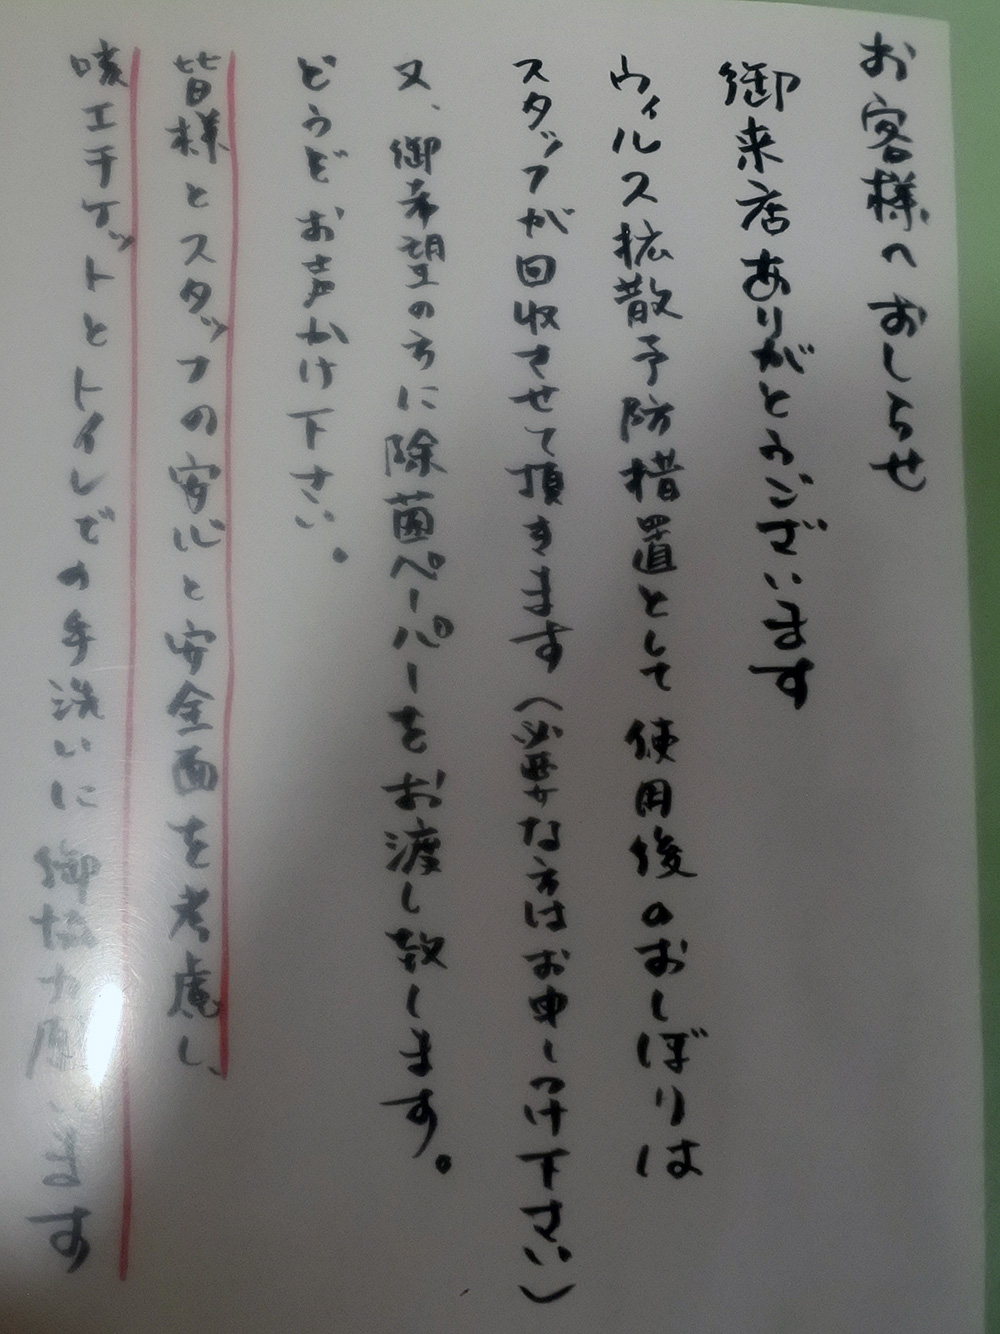 お客様へおしらせ
御来店ありがとうございます
ウィルス拡散予防措置として使用後のおしぼりは
スタッフが回収させて頂きます（必要な方はお申しつけ下さい）
又、御希望の方に除菌ペーパーをお渡し致します。
どうぞお声かけ下さい。
皆様とスタッフの安心と安全面を考慮し、
咳エチケットとトイレでの手洗いに御協力願います